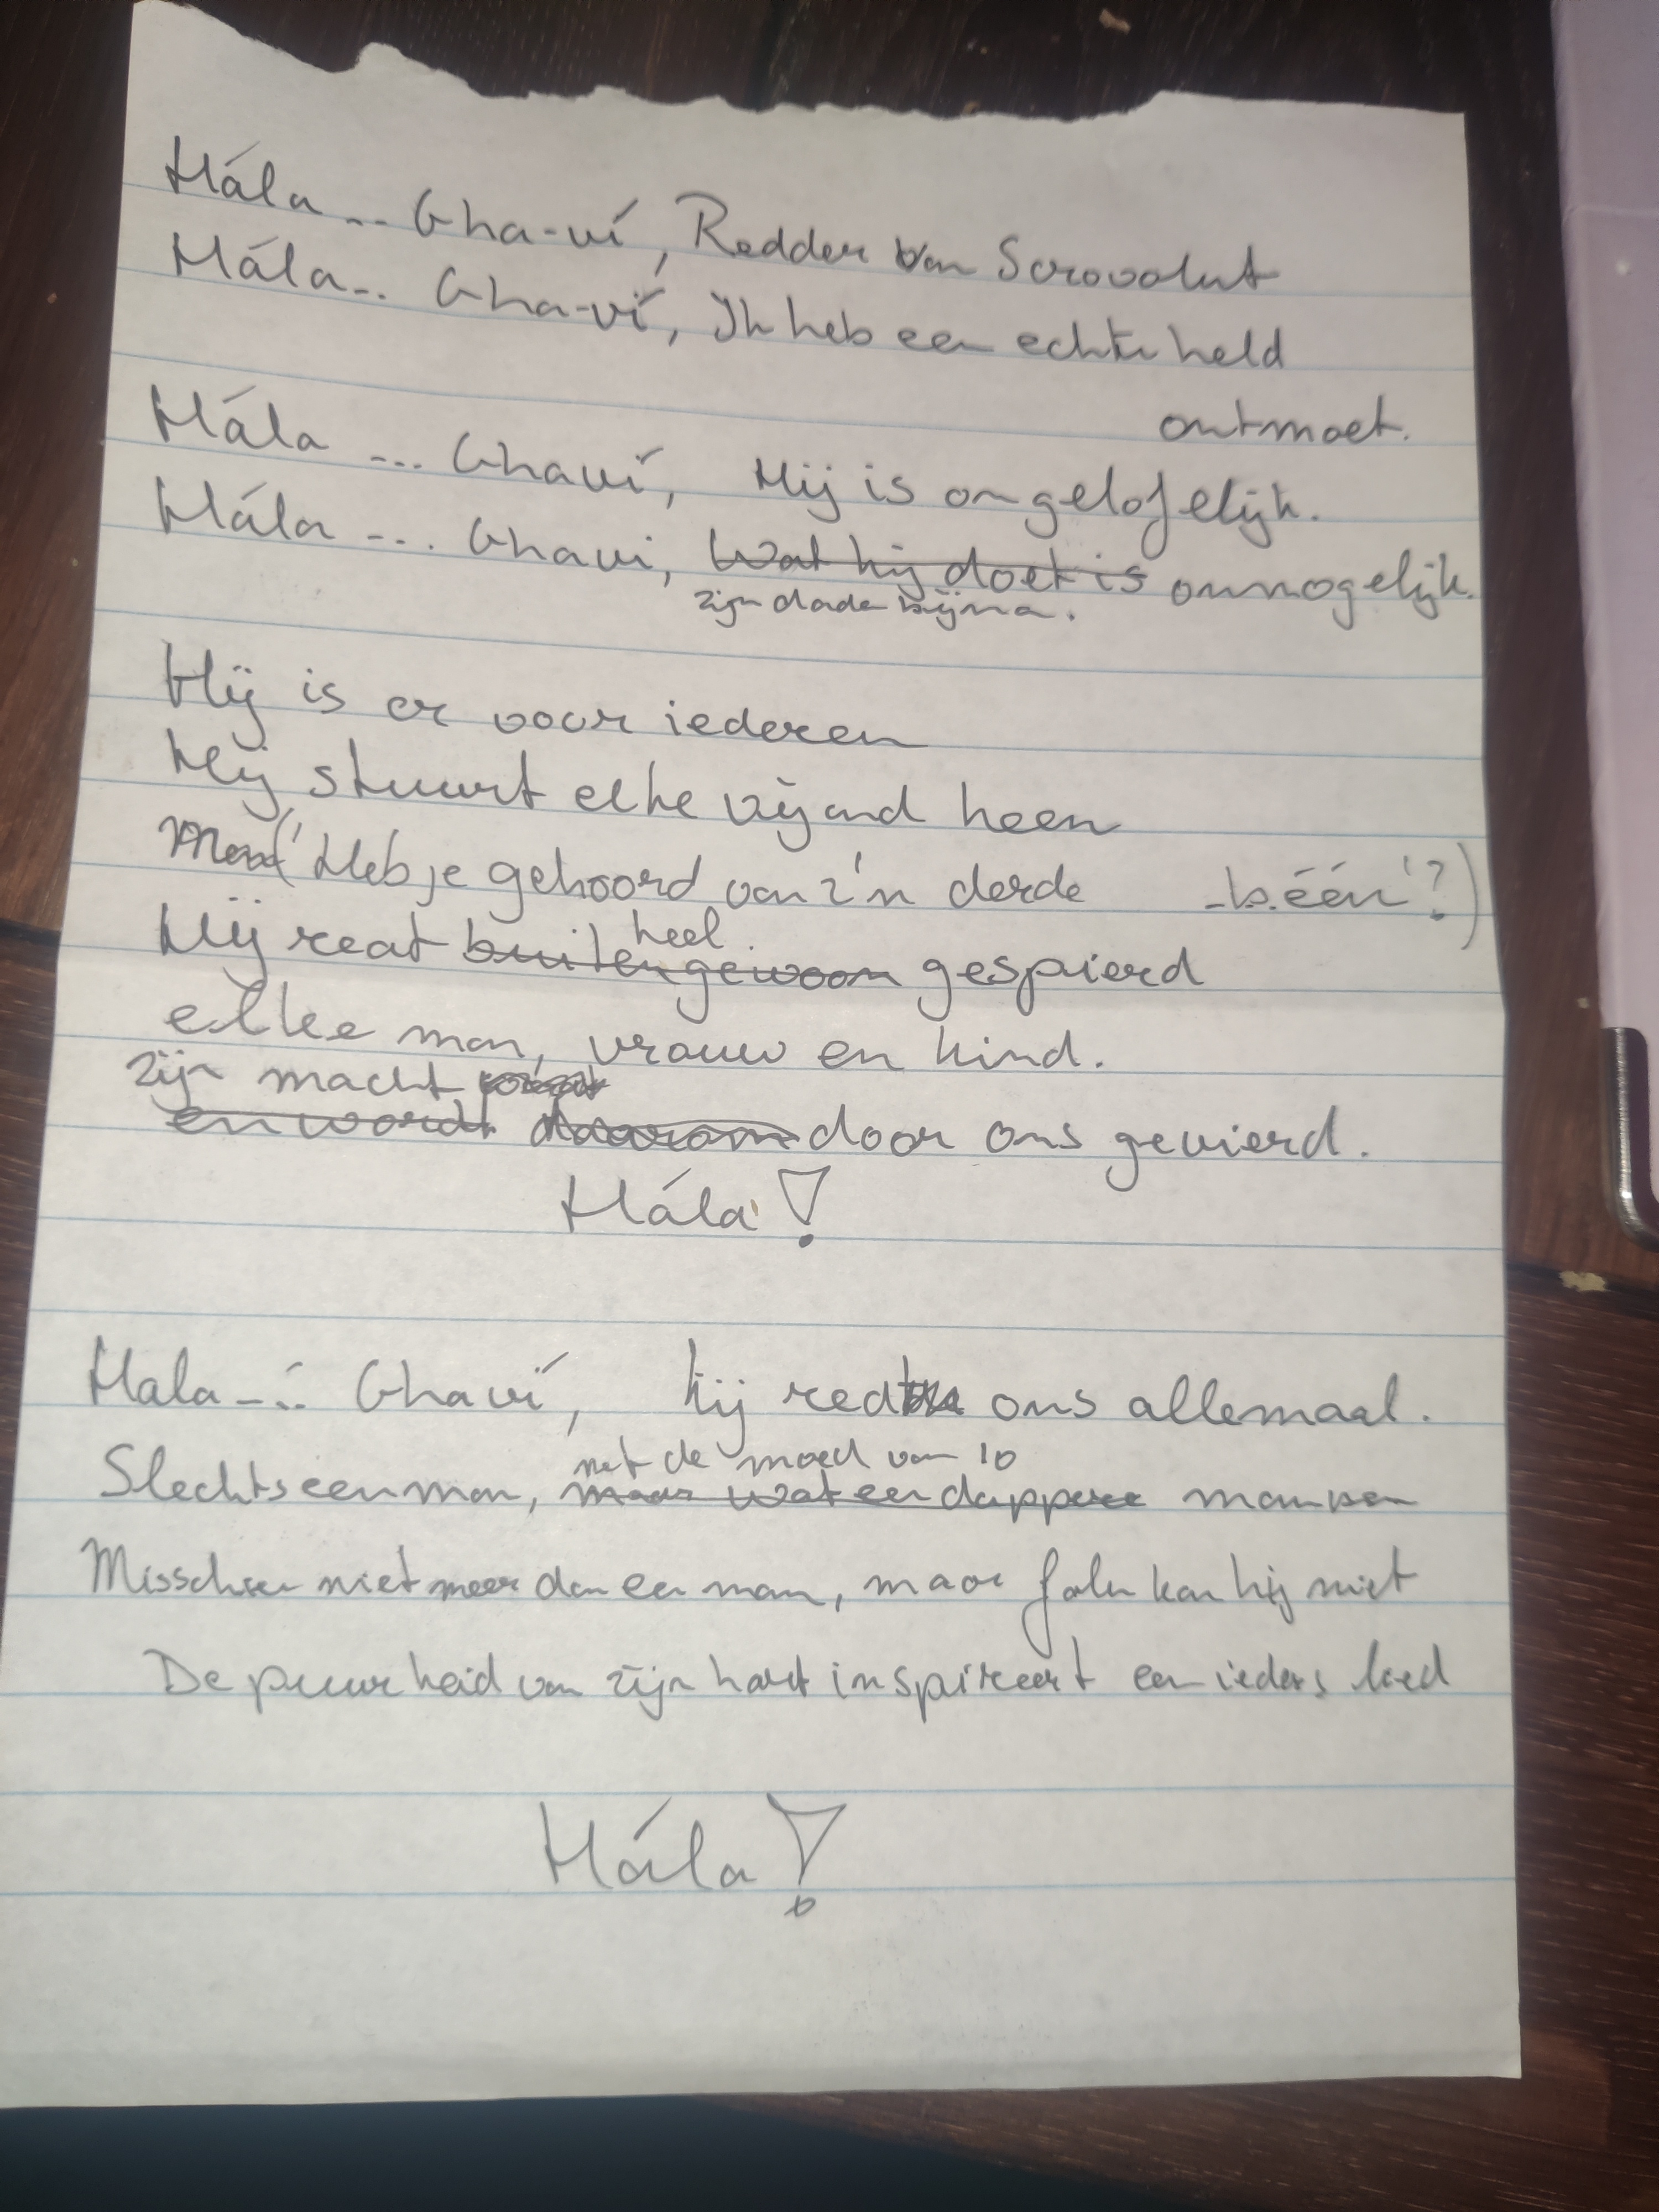 Hála... Gha-ví, Redder van Scrovolut
Hála... Gha-ví, Ik heb een echte held
ontmoet.
Hála ... Ghaví, Hij is ongelofelijk.
Hála ... Ghavi, Wat hij doet is onmogelijk.
zijn daden bijna.
Hij is er voor iederen
Hij stuurt elke vijand heen
('Heb je gehoord van z'n derde -b.één'?)
heel
Hij reat buitengewoon gespierd
elke man, vrouw en kind.
zijn macht
en wordt daarom door ons gevierd.
Hála!
Hala... Ghaví, hij red ons allemaal.
met de moed van 10
Slechts een man, maar wat een dappere mannen
Misschien niet meer dan een man, maar falen kan hij niet
De puurheid van zijn hart inspireert een ieders lied
Hála!